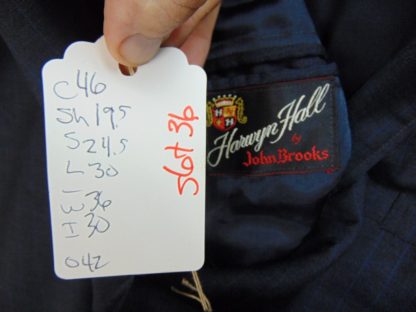 C46
Sh 19.5
S 24.5
L 30
W 36
I 30
042
56t 36
H H
Harwyn Hall
by
John Brooks